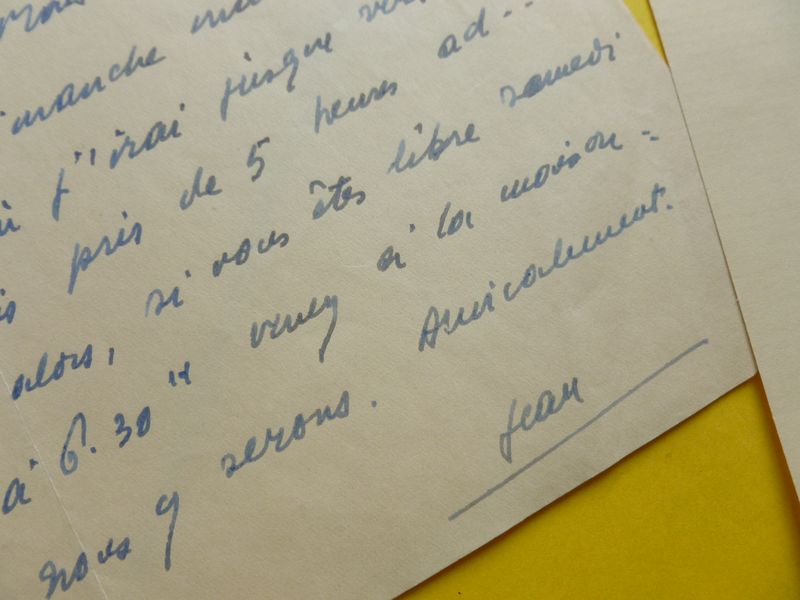 dimanche
j'irai jusque
pris de 5 heures ad..
alors, si vous êtes libre samedi
à 6.30" venez à la maison -
nous y serons. Amicalement.
Jean